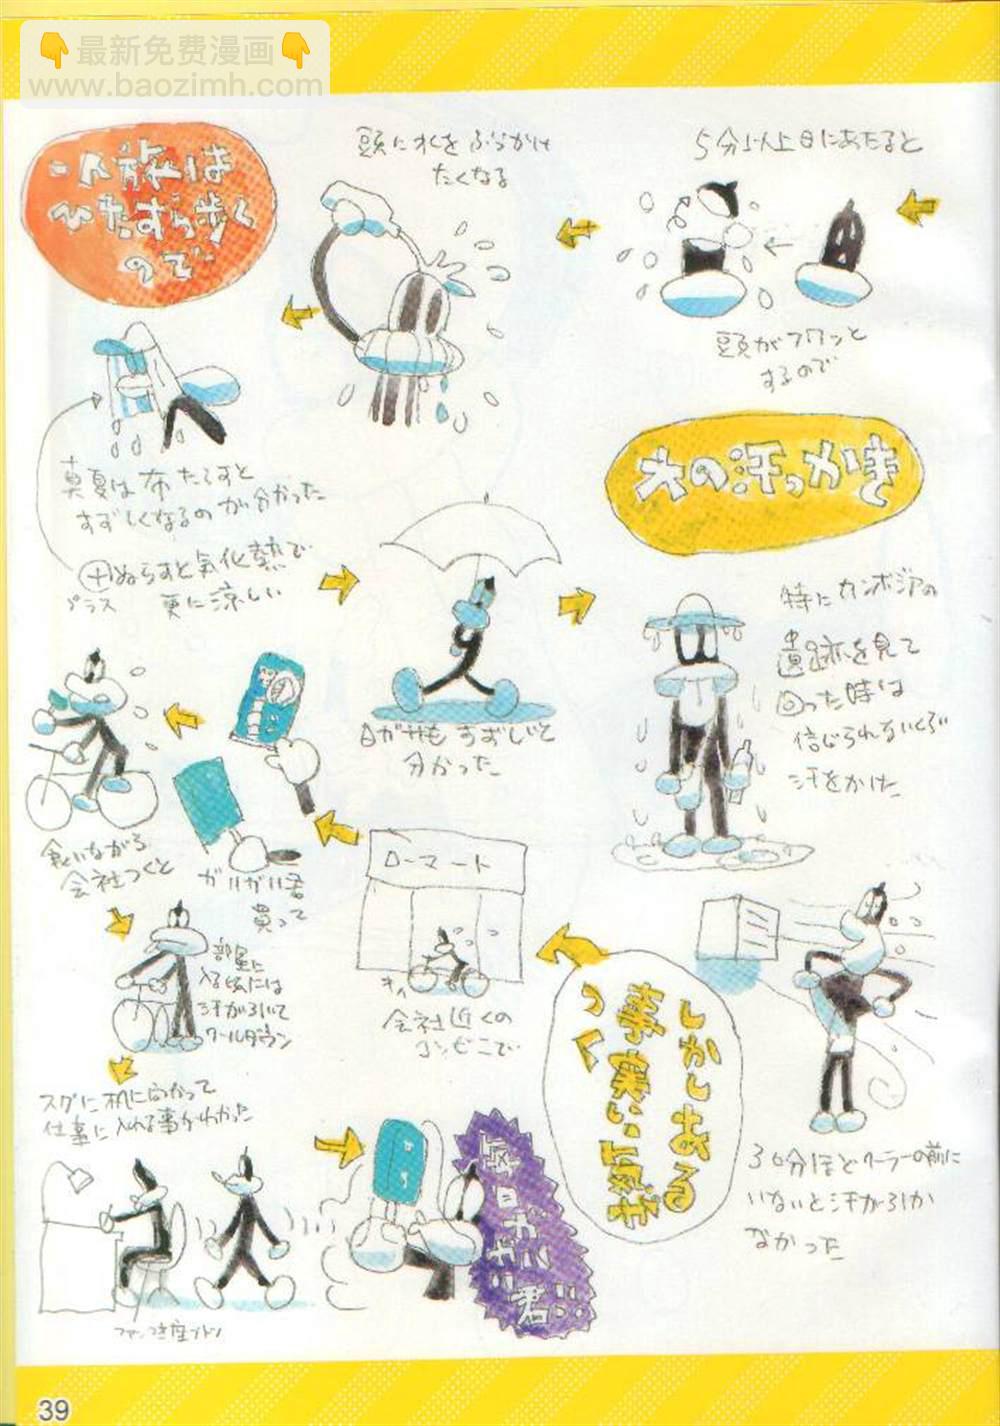 最新免费漫画
www.baozimh.com
5分以上日にあたると
頭がフワッと
するので
頭に水をぶっかけ
たくなる
一人旅は
ひたすら歩く
ので
真夏は布たらすと
すずしくなるのが分かった
＋ぬらすと気化熱で
プラス
更に涼しい
日ガサも すずしいと
分かった
大の汗っかき
特にカンボジアの
遺跡を見て
回った時は
信じられないくらい
汗をかいた
30分ほどクーラーの前に
いないと汗が引か
なかった
しかしある
事実に気が
つく
ローマート
キィ
会社近くの
コンビニで
ガリガリ君
買って
食いながら
会社つくと
部屋に
入る頃には
汗が引いて
クールダウン
スグに机に向かって
仕事に入れる事がわかった
ファンつき座ブトン
君
39